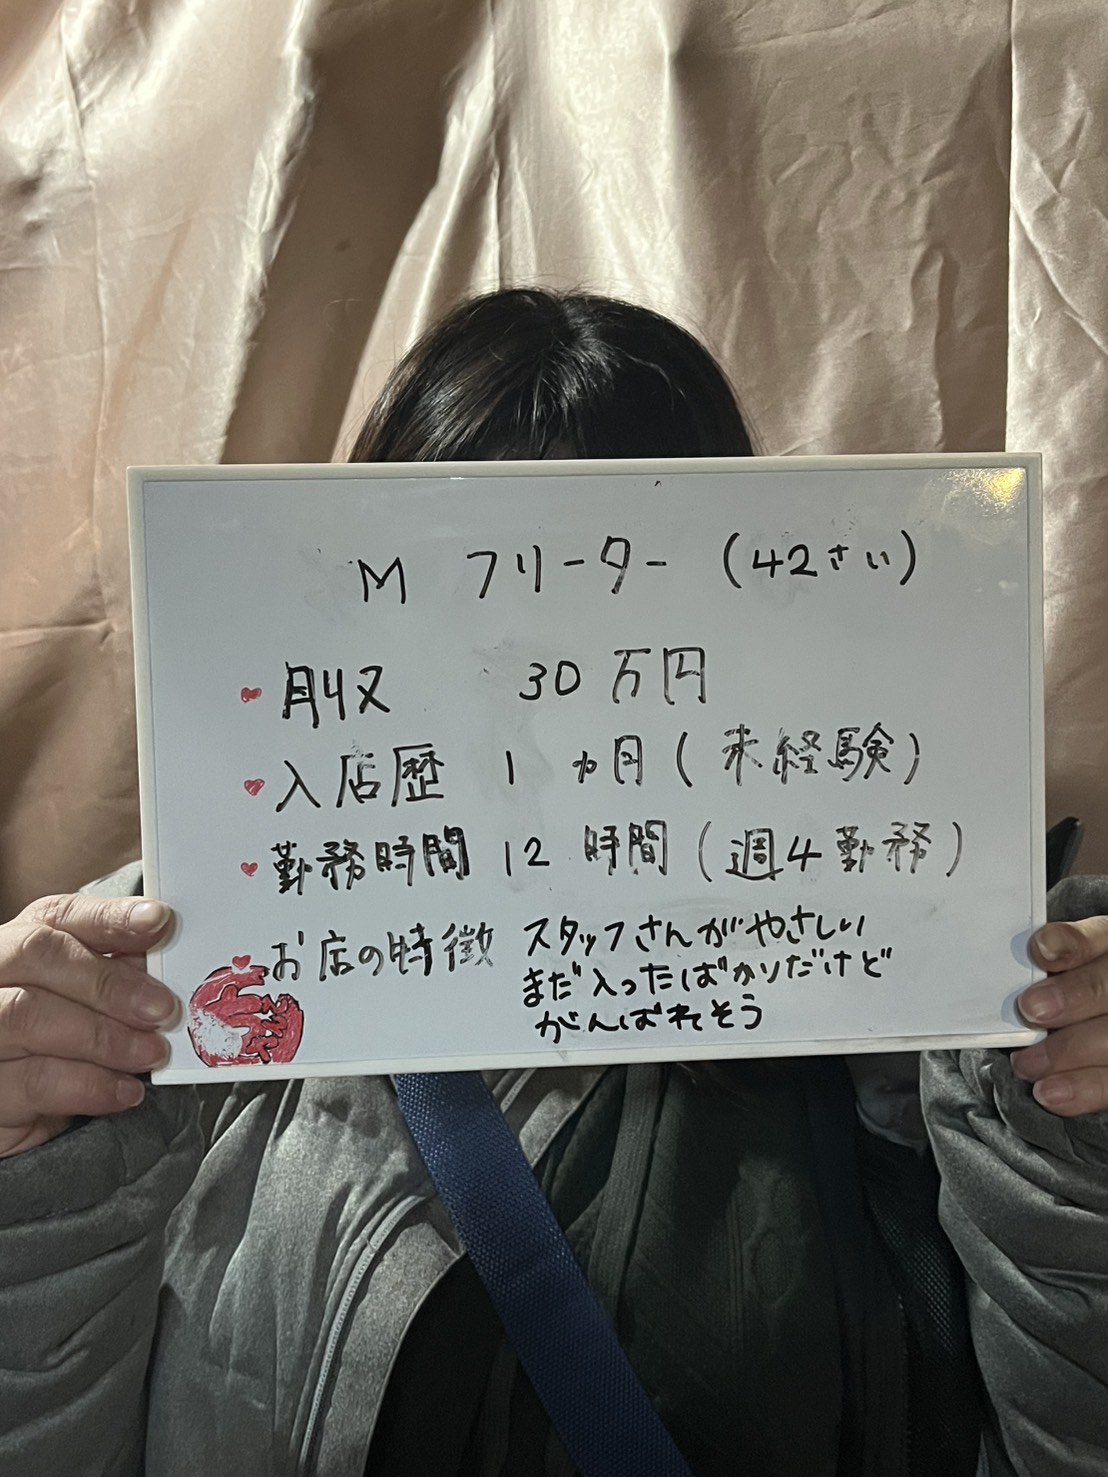 M フリーター (42さい)
月収 30万円
入店歴 1ヵ月(未経験)
勤務時間 12時間(週4勤務)
お店の特徴 スタッフさんがやさしい
まだ入ったばかりだけど
がんばれそう